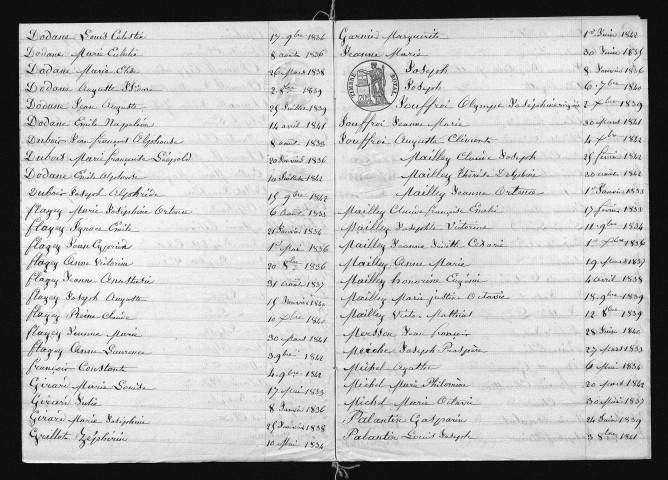 Dodane Louis Célestin 17 9bre 1834
Dodane Marie Eulalie 8 août 1836
Dodane Marie Elise 26 Mars 1838
Dodane Auguste Isidore 2 1839
Dodane Jean Auguste 25 Juillet 1839
Dodane Emile Napoléon 14 avril 1841
Dubois Jean François Alphonse 8 août 1833
Dubois Marie françoise Léopold 20 Janvier 1836
Dodane Emile Alphonse 10 Juillet 1842
Dubois Joseph Alphrède 15 9bre 1842
flagey Marie Joséphine Ortence 6 août 1833
flagey Ignace Emile 21 Janvier 1834
flagey Jean Cyprien 1er Mai 1836
flagey Anne Victorine 20 8bre 1836
flagey Jeanne Anastasie 31 août 1837
flagey Joseph Auguste 15 Janvier 1840
flagey Reine Claude 10 7bre 1840
flagey Jeanne Marie 30 Mars 1841
flagey Anne Laurence 3 9bre 1842
françois Constant 4 9bre 1842
Girard Marie Louise 17 Mai 1833
Girard Julie 8 Janvier 1836
Girard Marie Joséphine 25 Janvier 1838
Grillot Zéphirin 10 Mai 1834
Garnier Marguerite 1er Juin 1842
Jeanne Marie 30 Juin 1835
Joseph 8 Janvier 1836
Joseph 6 7bre 1840
TIMBRE ROYAL
Jouffroi Olympe 2 7bre 1839
Jouffroi Jeanne Marie 30 Mars 1841
Jouffroi Auguste Climent 4 7bre 1842
Mailley Claude Joseph 25 février 1842
Mailley Thérèse Delphine 30 août 1842
Mailley Jeanne Ortence 1er Janvier 1833
Mailley Claude françois 17 février 1833
Mailley Josephte Victorine 11 9bre 1834
Mailley Jeanne Judith Césarie 1er 1836
Mailley Anne Marie 19 Mars 1837
Mailley honorine Eugénie 4 avril 1838
Mailley Marie justine Octavie 18 9bre 1839
Mailley Victor Mathias 12 8bre 1839
Mersson Jean françois 28 Juin 1840
Meiche Joseph Prospère 27 Mars 1833
Michel Agathe 6 Mai 1834
Michel Marie Philomine 20 Mars 1842
Michel Marie Octavie 30 1837
Palantin Gasparin 24 Juin 1839
Palantin Louis Joseph 3 8bre 1841